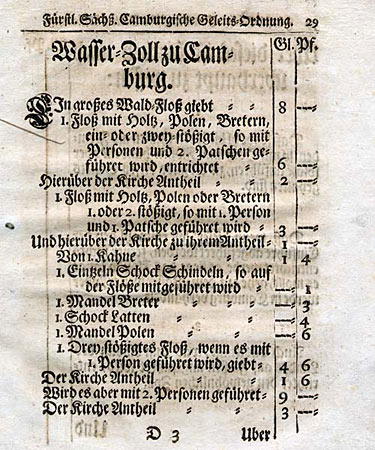 Fürstl. Sächß. Camburgische Geleits-Ordnung. 29
Wasser-Zoll zu Cam- Gl. Pf.
burg.
Ein großes Wald-Floß giebt - - 8 —
1. Floß mit Holtz, Polen, Bretern,
ein- oder zwey-stößigt, so mit
Personen und 2. Patschen ge-
führet wird, entrichtet - 6 —
Hierüber der Kirche Antheil - - 2 —
1. Floß mit Holtz, Polen oder Bretern
1. oder 2. stößigt, so mit 1. Person
und 1. Patsche geführet wird - 3 —
Und hierüber der Kirche zu ihrem Antheil- 1 —
Von 1. Kahne - - 1 4
1. Eintzeln Schock Schindeln, so auf
der Flöße mitgeführet wird - — 1
1. Mandel Breter - - — 3
1. Schock Latten - - — 4
1. Mandel Polen - - — 6
1. Drey-stößigtes Floß, wenn es mit
1. Person geführet wird, giebt- 4 6
Der Kirche Antheil - - 1 6
Wird es aber mit 2. Personen geführet- 9 —
Der Kirche Antheil - - 3 —
D 3 Uber